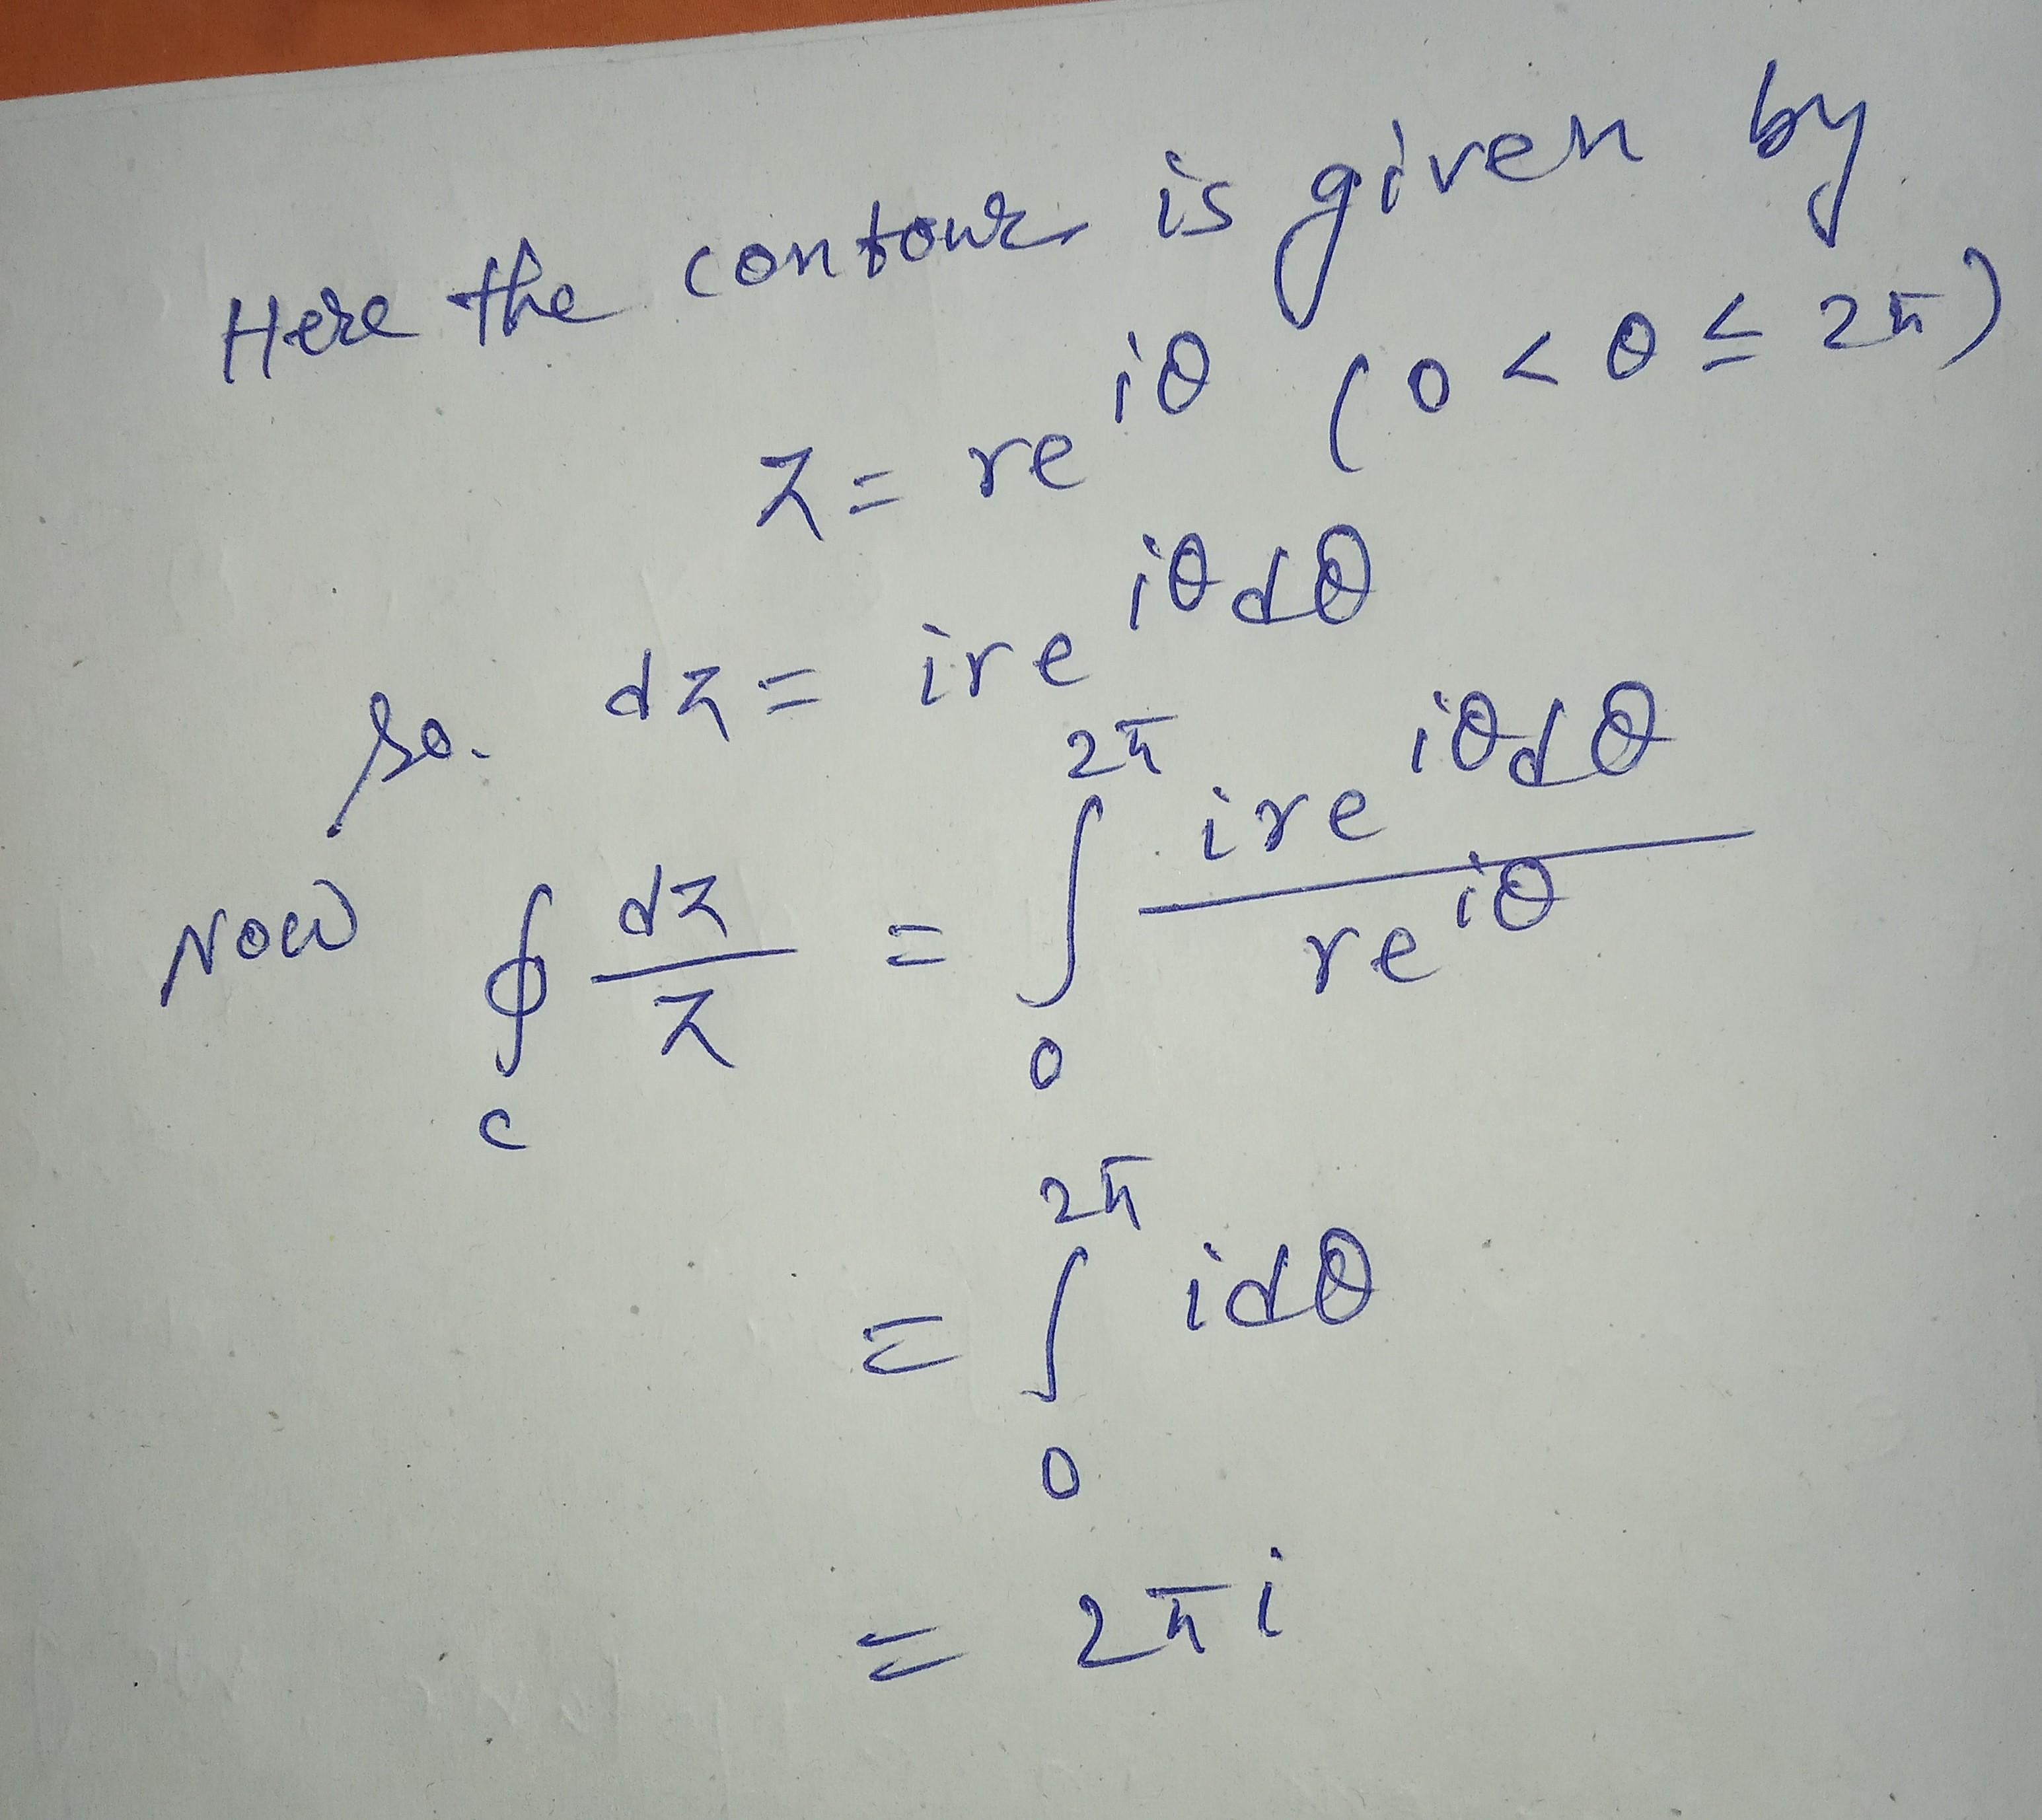 Here the contour is given by
z = re^{iθ} (0 < θ ≤ 2π)
So. dz = ire^{iθ}dθ
Now ∮_C dz/z = ∫_0^{2π} ire^{iθ}dθ / re^{iθ}
= ∫_0^{2π} idθ
= 2πi